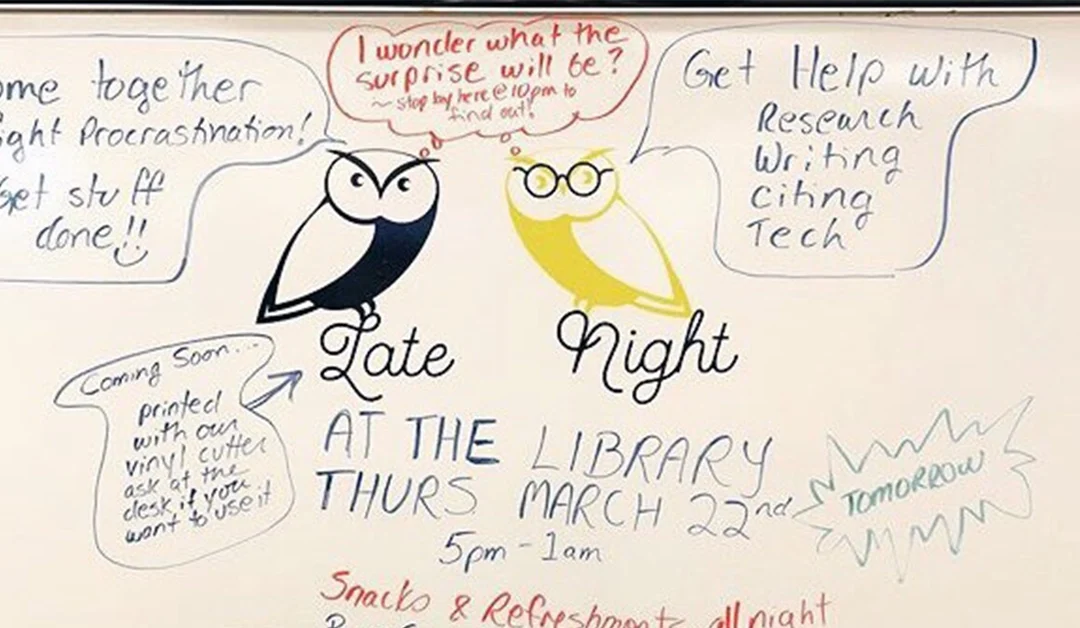 ome together
ight Procrastination!
Get stuff
done!!
I wonder what the
surprise will be?
~ stop by here @ 10pm to
find out!
Get Help with
Research
Writing
Citing
Tech
Late Night
Coming Soon...
printed
with our
vinyl cutter
ask at the
desk, if you
want to use it
AT THE LIBRARY
THURS MARCH 22nd
TOMORROW
5pm - 1am
Snacks & Refreshments all night